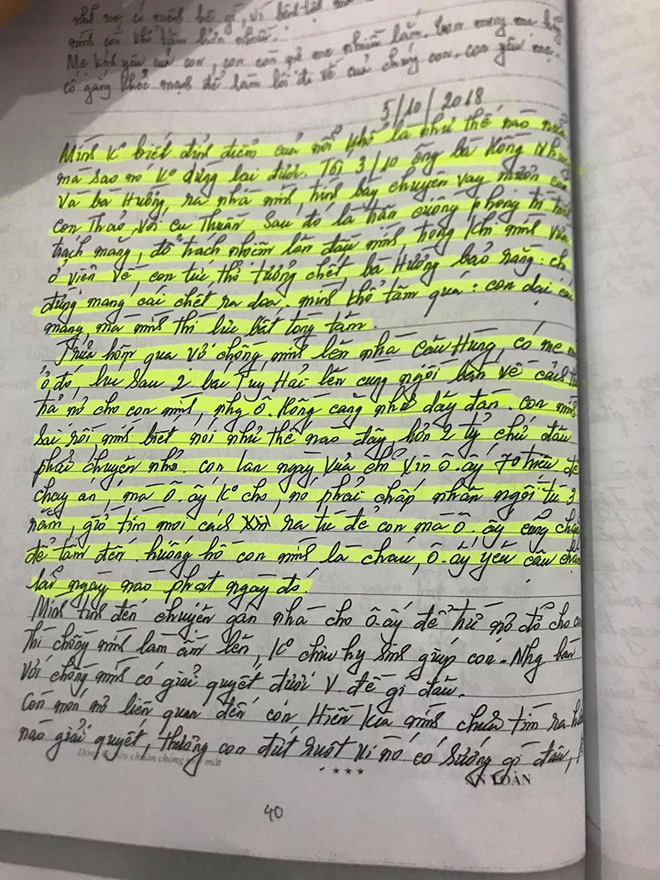 nhờ mẹ có mệnh hệ gì, vì bệnh tật mà
mình còn khổ tâm hơn nhiều.
Mẹ kính yêu của con, con còn nợ mẹ nhiều lắm. Con mong mẹ hãy
cố gắng khỏe mạnh để làm lối đi về của chúng con. con yêu mẹ.
5/10/2018
Mình k° biết đỉnh điểm của nỗi khổ là như thế nào nữa
mà sao nó k° dừng lại được. Tối 3/10 ông bà Hồng Nhung
và bà Hường, ra nhà mình, trình bày chuyện vay mượn của
con Thảo, với cu Thuân sau đó là hắn cuồng phong thì
trách mắng, đổ trách nhiệm lên đầu mình, trong khi mình vừa
ở viện về, con tức thở tưởng chết, bà Hường bảo rằng: chị
đừng mang cái chết ra dọa, mình khổ tâm quá: con dại cái
mang, mà mình thì lực bất tòng tâm
Trưa hôm qua vợ chồng mình lên nhà cậu Hùng, có mẹ
ở đó, lúc sau 2 bác Tuy Hải lên cùng ngồi bàn về cách
trả nợ cho con mình, nhg ô. Hồng căng như dây đàn. Con mình
sai rồi mình biết nói như thế nào đây, hơn 2 tỷ chứ đâu
phải chuyện nhỏ. con lan ngay vừa chỉ xin ô. ấy 70 triệu để
chạy án, mà ô. ấy k° cho, nó phải chấp nhận ngồi tù 3
năm, giờ tìm mọi cách ra tù để con mà ô. ấy cũng chẳng
để tâm đến. huống hồ con mình là cháu, ô. ấy yêu cầu chậm
lại ngày nào phạt ngày đó.
Mình tính đến chuyện gán nhà cho ô. ấy để trừ nợ đỡ cho con
thì chồng mình làm ầm lên, k° chịu hy sinh giúp con. Nhg bán
với chồng mình có giải quyết được V đề gì đâu.
Còn món nợ liên quan đến con Hiền kia mình chưa tìm ra
nào giải quyết, thương con đứt ruột vì nó có sướng gì đâu,
★ ★ ★
AN TOÀN
40